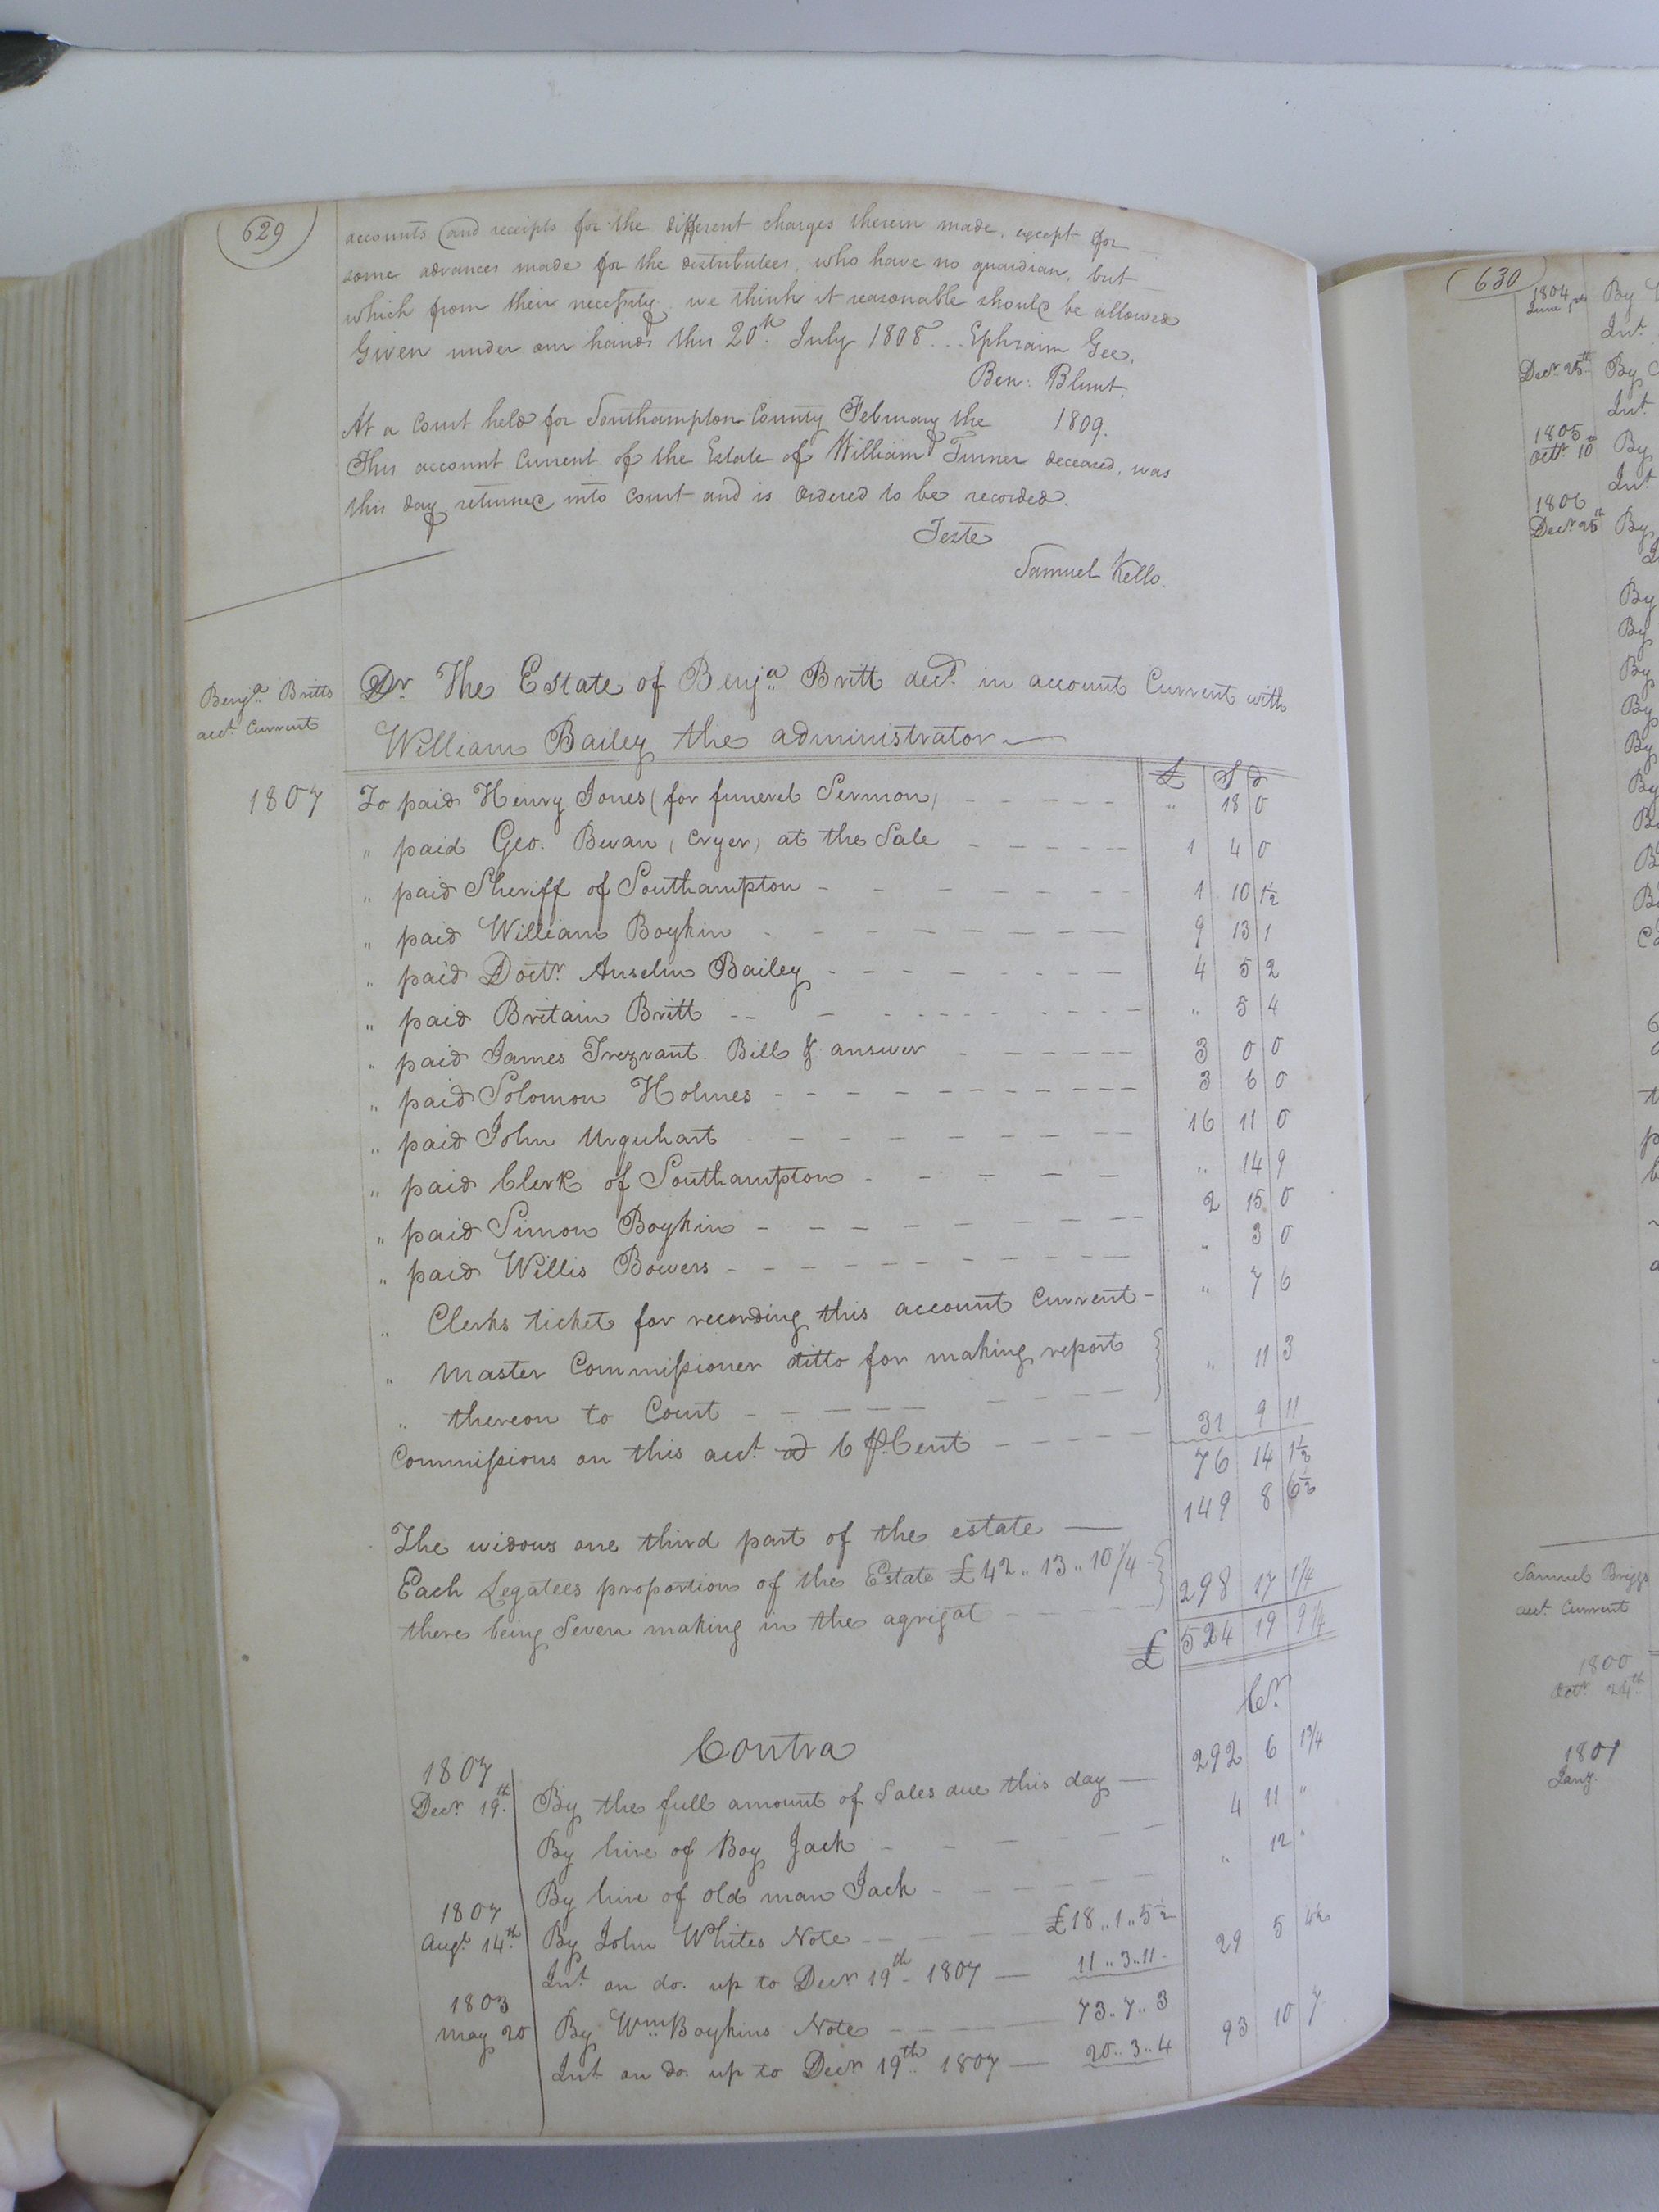 629
accounts (and receipts for the different charges therein made, except for
some advances made for the distributees, who have no guardian, but
which from their necessity we think it reasonable should be allowed
Given under our hands this 20th July 1808 . . Ephraim Gee,
Ben: Blunt.
At a Court held for Southampton County February the 1809.
This account Current of the Estate of William Turner deceased, was
this day returned into Court and is Ordered to be recorded.
Teste
Samuel Kello.
Benja Britts
acct Current
Dr The Estate of Benja Britt decd in account Current with
William Bailey the administrator
£ S d
1807 To paid Henry Jones (for funerel Sermon) " 18 0
" paid Geo: Bevan (cryer) at the Sale 1 4 0
" paid Sheriff of Southampton 1 10 1½
" paid William Boykin 9 13 1
" paid Doctr Anselm Bailey 4 5 2
" paid Britain Britt " 5 4
" paid James Trezvant Bill & answer 3 0 0
" paid Solomon Holmes 3 6 0
" paid John Urquhart 16 11 0
" paid Clerk of Southampton " 14 9
" paid Simon Boykin 2 15 0
" paid Willis Bowers " 3 0
" Clerks ticket for recording this account Current " 7 6
" Master Commissioner ditto for making report
" thereon to Court " 11 3
Commissions on this acct ad 6 pCent 31 9 11
76 14 1½
The widows one third part of the estate 149 8 6½
Each Legatees proportion of the Estate £42 " 13 " 10¼
there being Seven making in the agrigat 298 17 1¼
£ 524 19 9¼
Contra Cr
1807
Decr 19th By the full amount of Sales due this day 292 6 1¾
By hire of Boy Jack 4 11 "
By hire of old man Jack " 12 "
1807
Augt 14th By John Whites Note £18 " 1 " 5½
Int on do. up to Decr 19th 1807 11 " 3 " 11 29 5 4½
1803
May 20 By Wm Boykins Note 73 " 7 " 3
Int on do. up to Decr 19th 1807 20 " 3 " 4 93 10 7
630
1804
June 1st By
Int.
Decr 25th By
Int
1805
Octr 10th By
Int
1806
Decr 25th By
By
By
By
By
By
By
Samuel Briggs
acct Current
1800
Octr 24th
1801
Jany.